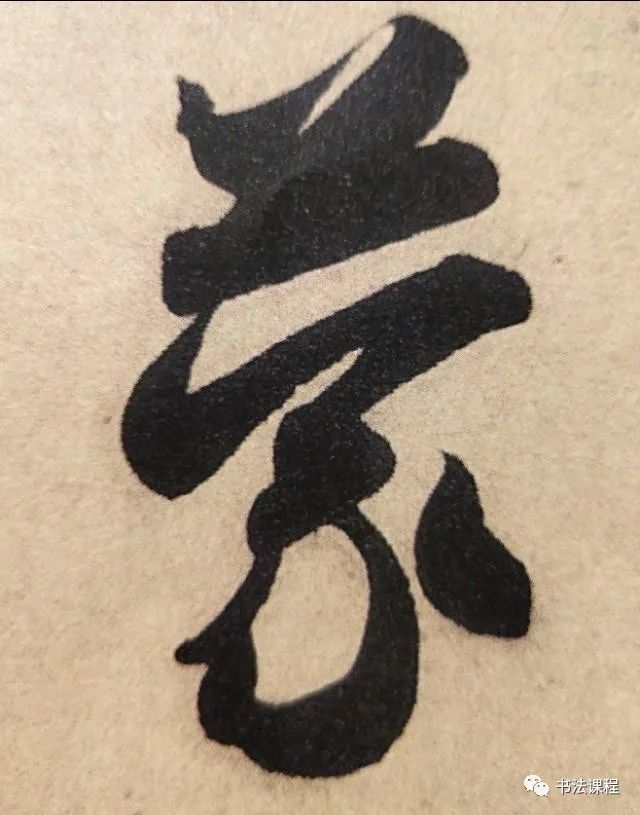 蒙
书法课程